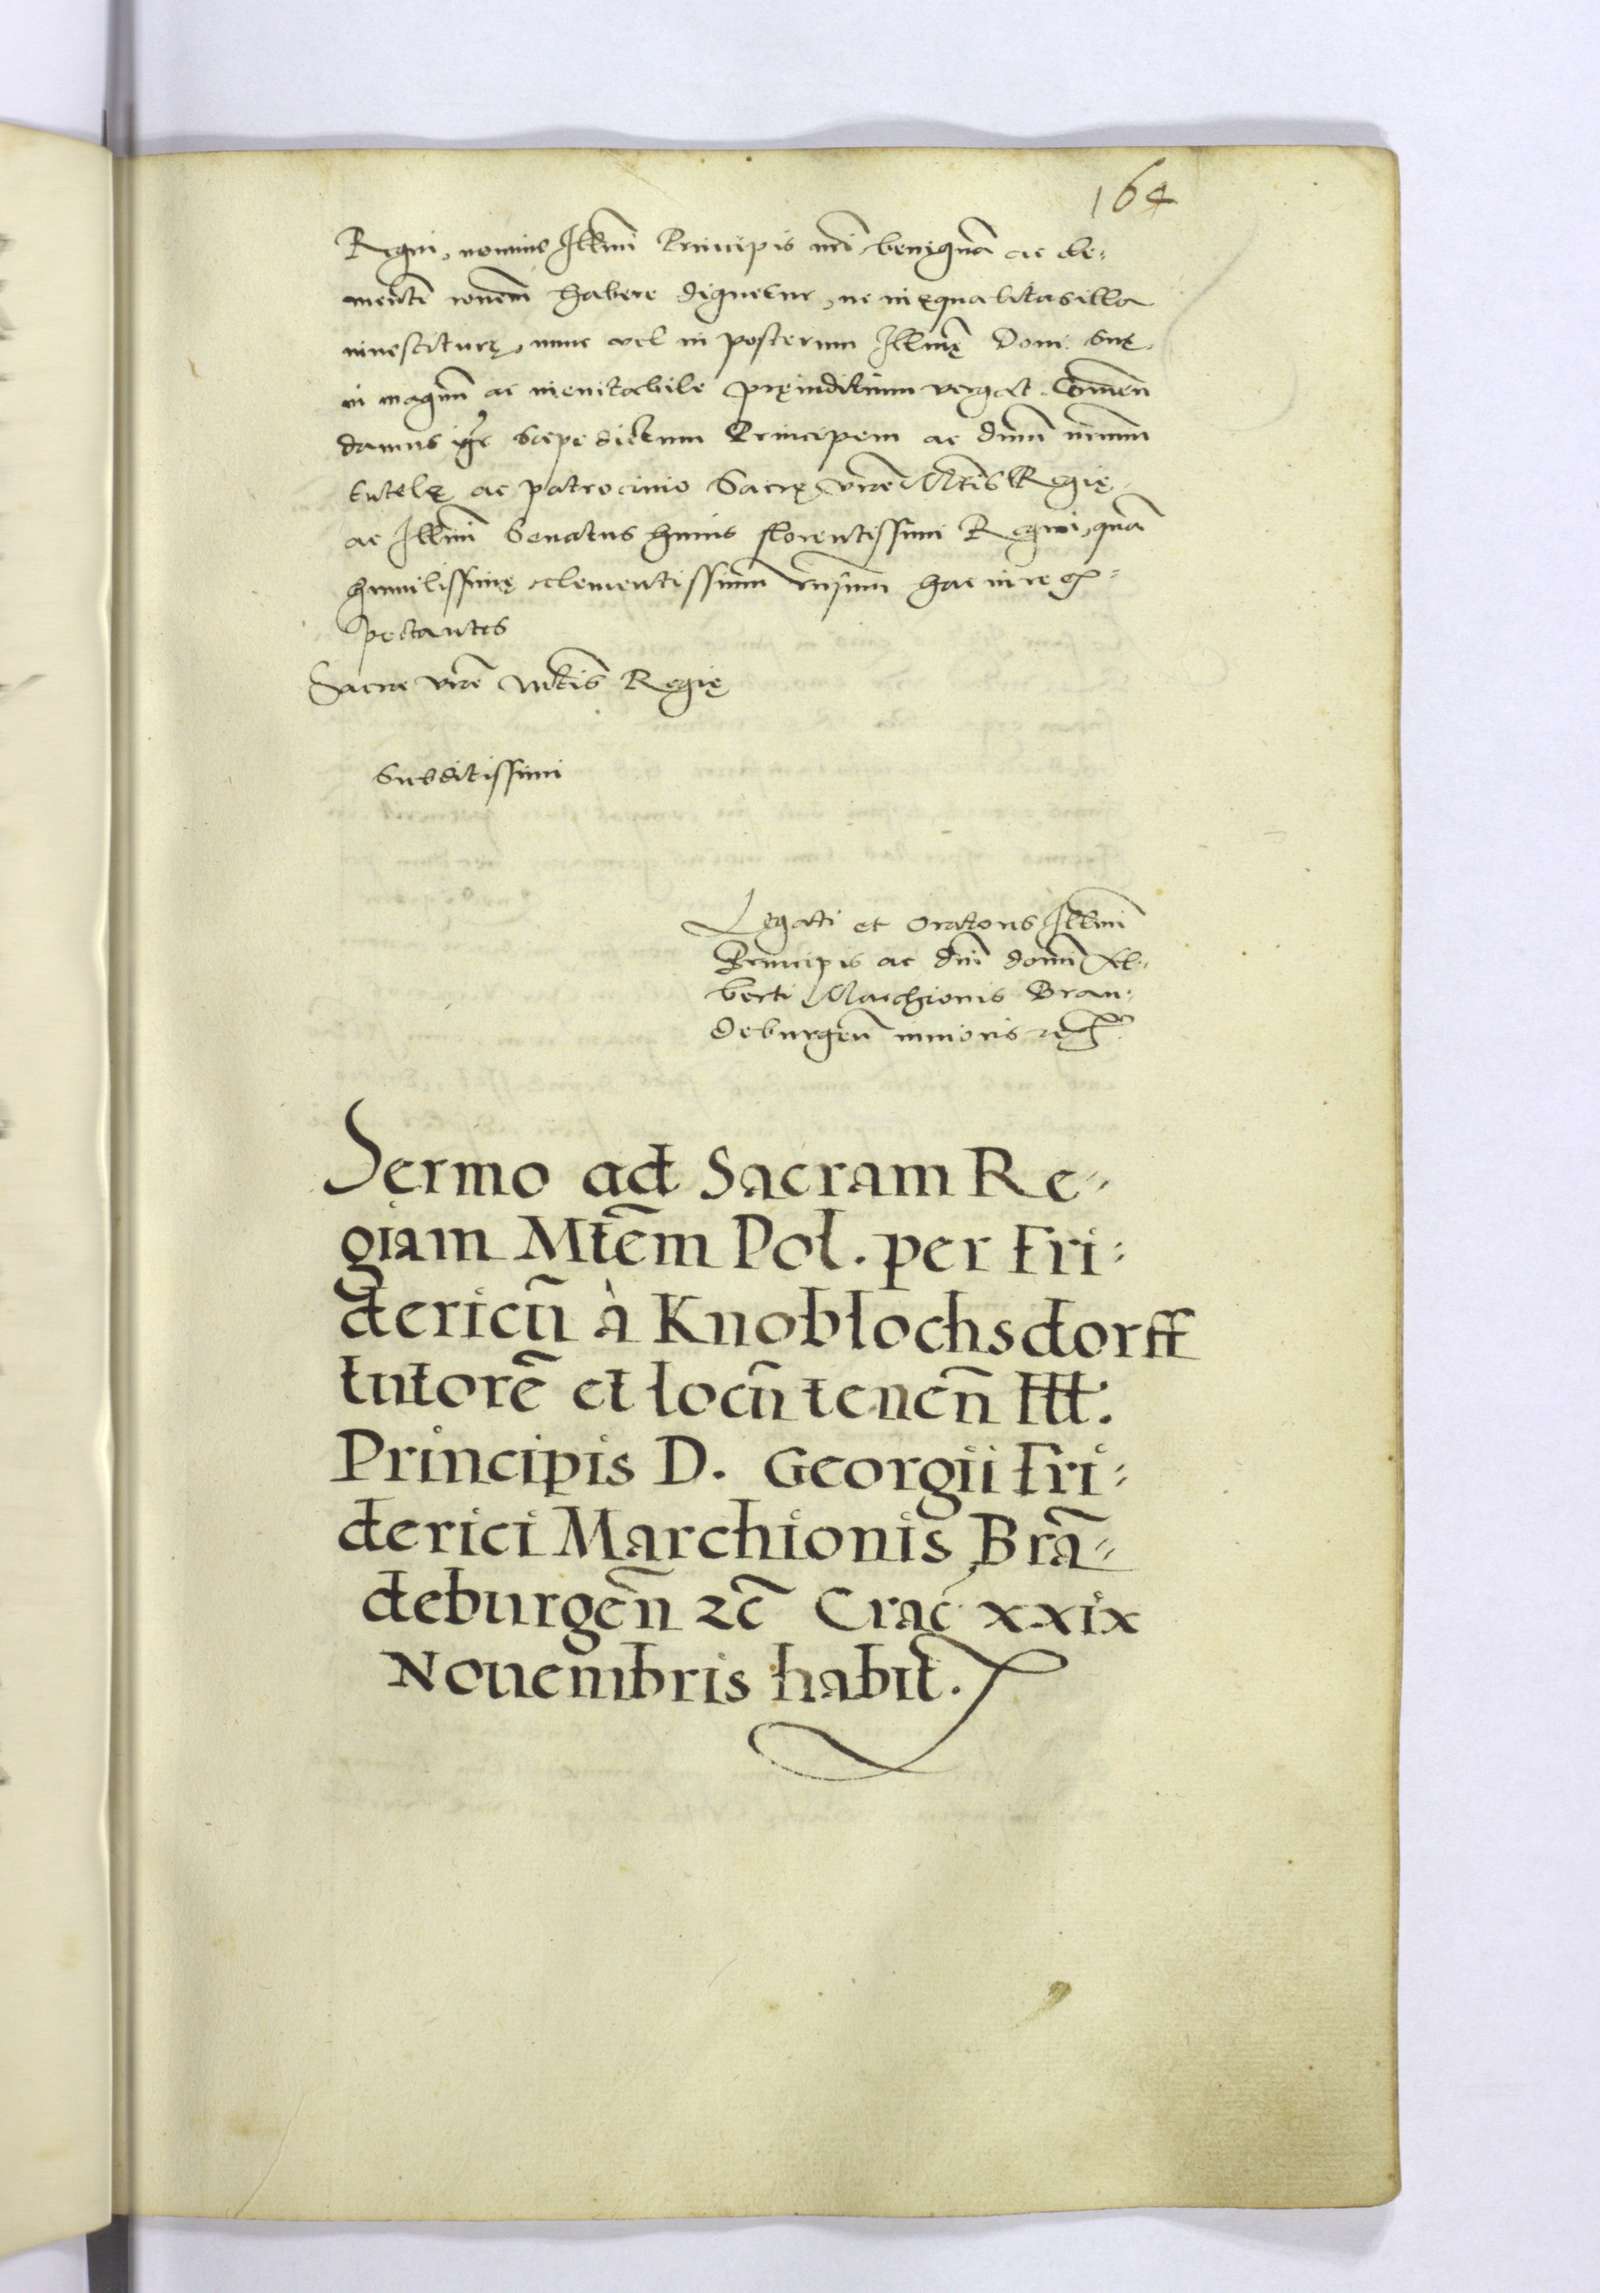 164
Regni, nomine Illmi Principis nri benignã ac cle=
mentẽ rõnem habere dignetur, ne inęqualitas illa
inuestiturę, nunc vel in posterum Illmę Doni. Suę
in magnũ ac ineuitabile pręiuditium vergat. Comen
damus igr saepe dictum Principem ac dnũ nrmũm
tutelę ac patrocinio Sacrę vrae Mtis Regię,
ac Illmi Senatus huius florentissimi Regni, quã
humilissimę clementissimũ hac in re ex=
pectantes
Sacrae vrae Mtis Regię
Subditissimi
Legati et Oratoris Illmi
Principis ac dñi domi Al=
berti Marchionis Bran=
deburgeñ iunioris
Sermo ad Sacram Re=
giam Mtẽm Pol. per Fri=
dericũ à Knoblochsdorff
tutorẽ et locũ tenẽn Ill:
Principis D. Georgii Fri=
derici Marchionis Brã=
deburgẽn &c̃ Crac̃ xxix
Nouembris habit.